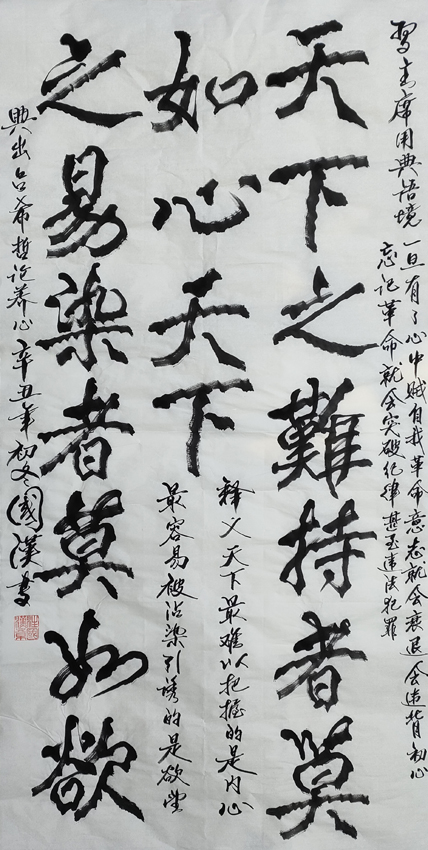 习主席用典语境 一旦有了心中贼自我革命意志就会衰退会违背初心
忘记革命就会突破纪律甚至违法犯罪
天下之難持者莫
如心天下
释义天下最难以把握的是内心
最容易被沾染引诱的是欲望
之易染者莫如欲
典出吕希哲论养心 辛丑年初冬國漢書